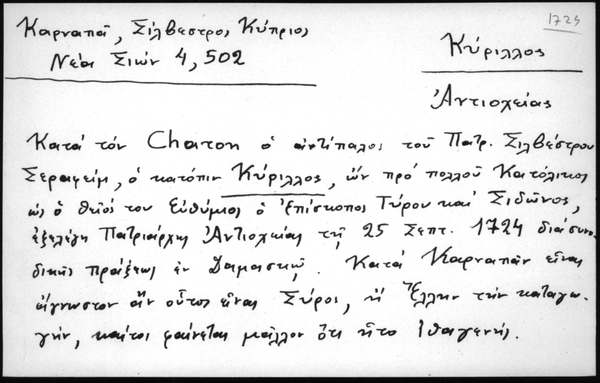 1724
Καρναπᾶ, Σίλβεστρος Κύπριος
Νέα Σιών 4, 502
Κύριλλος
Ἀντιοχείας
Κατά τόν Charon ὁ ἀντίπαλος τοῦ Πατρ. Σιλβέστρου
Σεραφείμ, ὁ κατόπιν Κύριλλος, ὤν πρό πολλοῦ Κατόλικος
ὡς ὁ θεῖός του Εὐθύμιος ὁ Ἐπίσκοπος Τύρου καί Σιδῶνος,
ἐξελέγη Πατριάρχης Ἀντιοχείας τῇ 25 Σεπτ. 1724 διά συνο-
δικῆς πράξεως ἐν Δαμασκῷ. Κατά Καρναπᾶν εἶναι
ἄγνωστον ἄν οὗτος εἶναι Σύρος, ἤ Ἕλλην τήν καταγω-
γήν, καίτοι φαίνεται μᾶλλον ὅτι ἦτο ἰθαγενής.